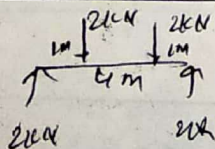 2KN 2KN
1m 1m
4m
2KN 2KN